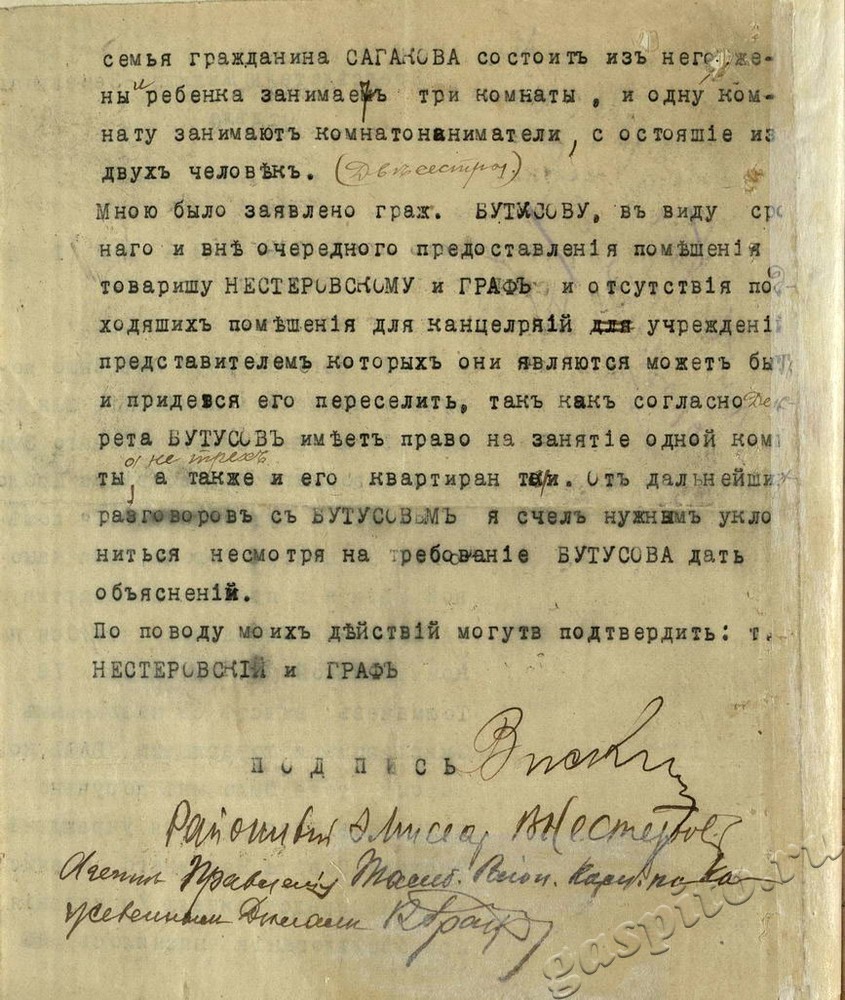 семья гражданина САГАКОВА состоитъ изъ него, же-
ны и ребенка занимаетъ три комнаты, и одну ком-
нату занимаютъ комнатонаниматели, с остояшіе из
двухъ человѣкъ. (Двѣ сестры.)
Мною было заявлено граж. БУТУСОВУ, въ виду сро
наго и внѣ очередного предоставленія помѣшенія
товаришу НЕСТЕРОВСКОМУ и ГРАФЪ и отсутствія по
ходяшихъ помѣшенія для канцелряій для учрежденій
представителемъ которыхъ они являются можетъ бы
и придевся его переселить, такъ какъ согласно Дек-
рета БУТУСОВЪ имѣетъ право на занятіе одной ком
а не трехъ
ты, а также и его квартиран ты. Отъ дальнейших
разговоровъ съ БУТУСОВЫМЪ я счелъ нужнымъ укло
ниться несмотря на требованіе БУТУСОВА дать
объясненій.
По поводу моихъ дѣйствій могутв подтвердить: т.
НЕСТЕРОВСКІЙ и ГРАФЪ
ПОДПИСЬ
Районный
Агентъ Правленія по
Дѣламъ В Графъ
gaspito.ru